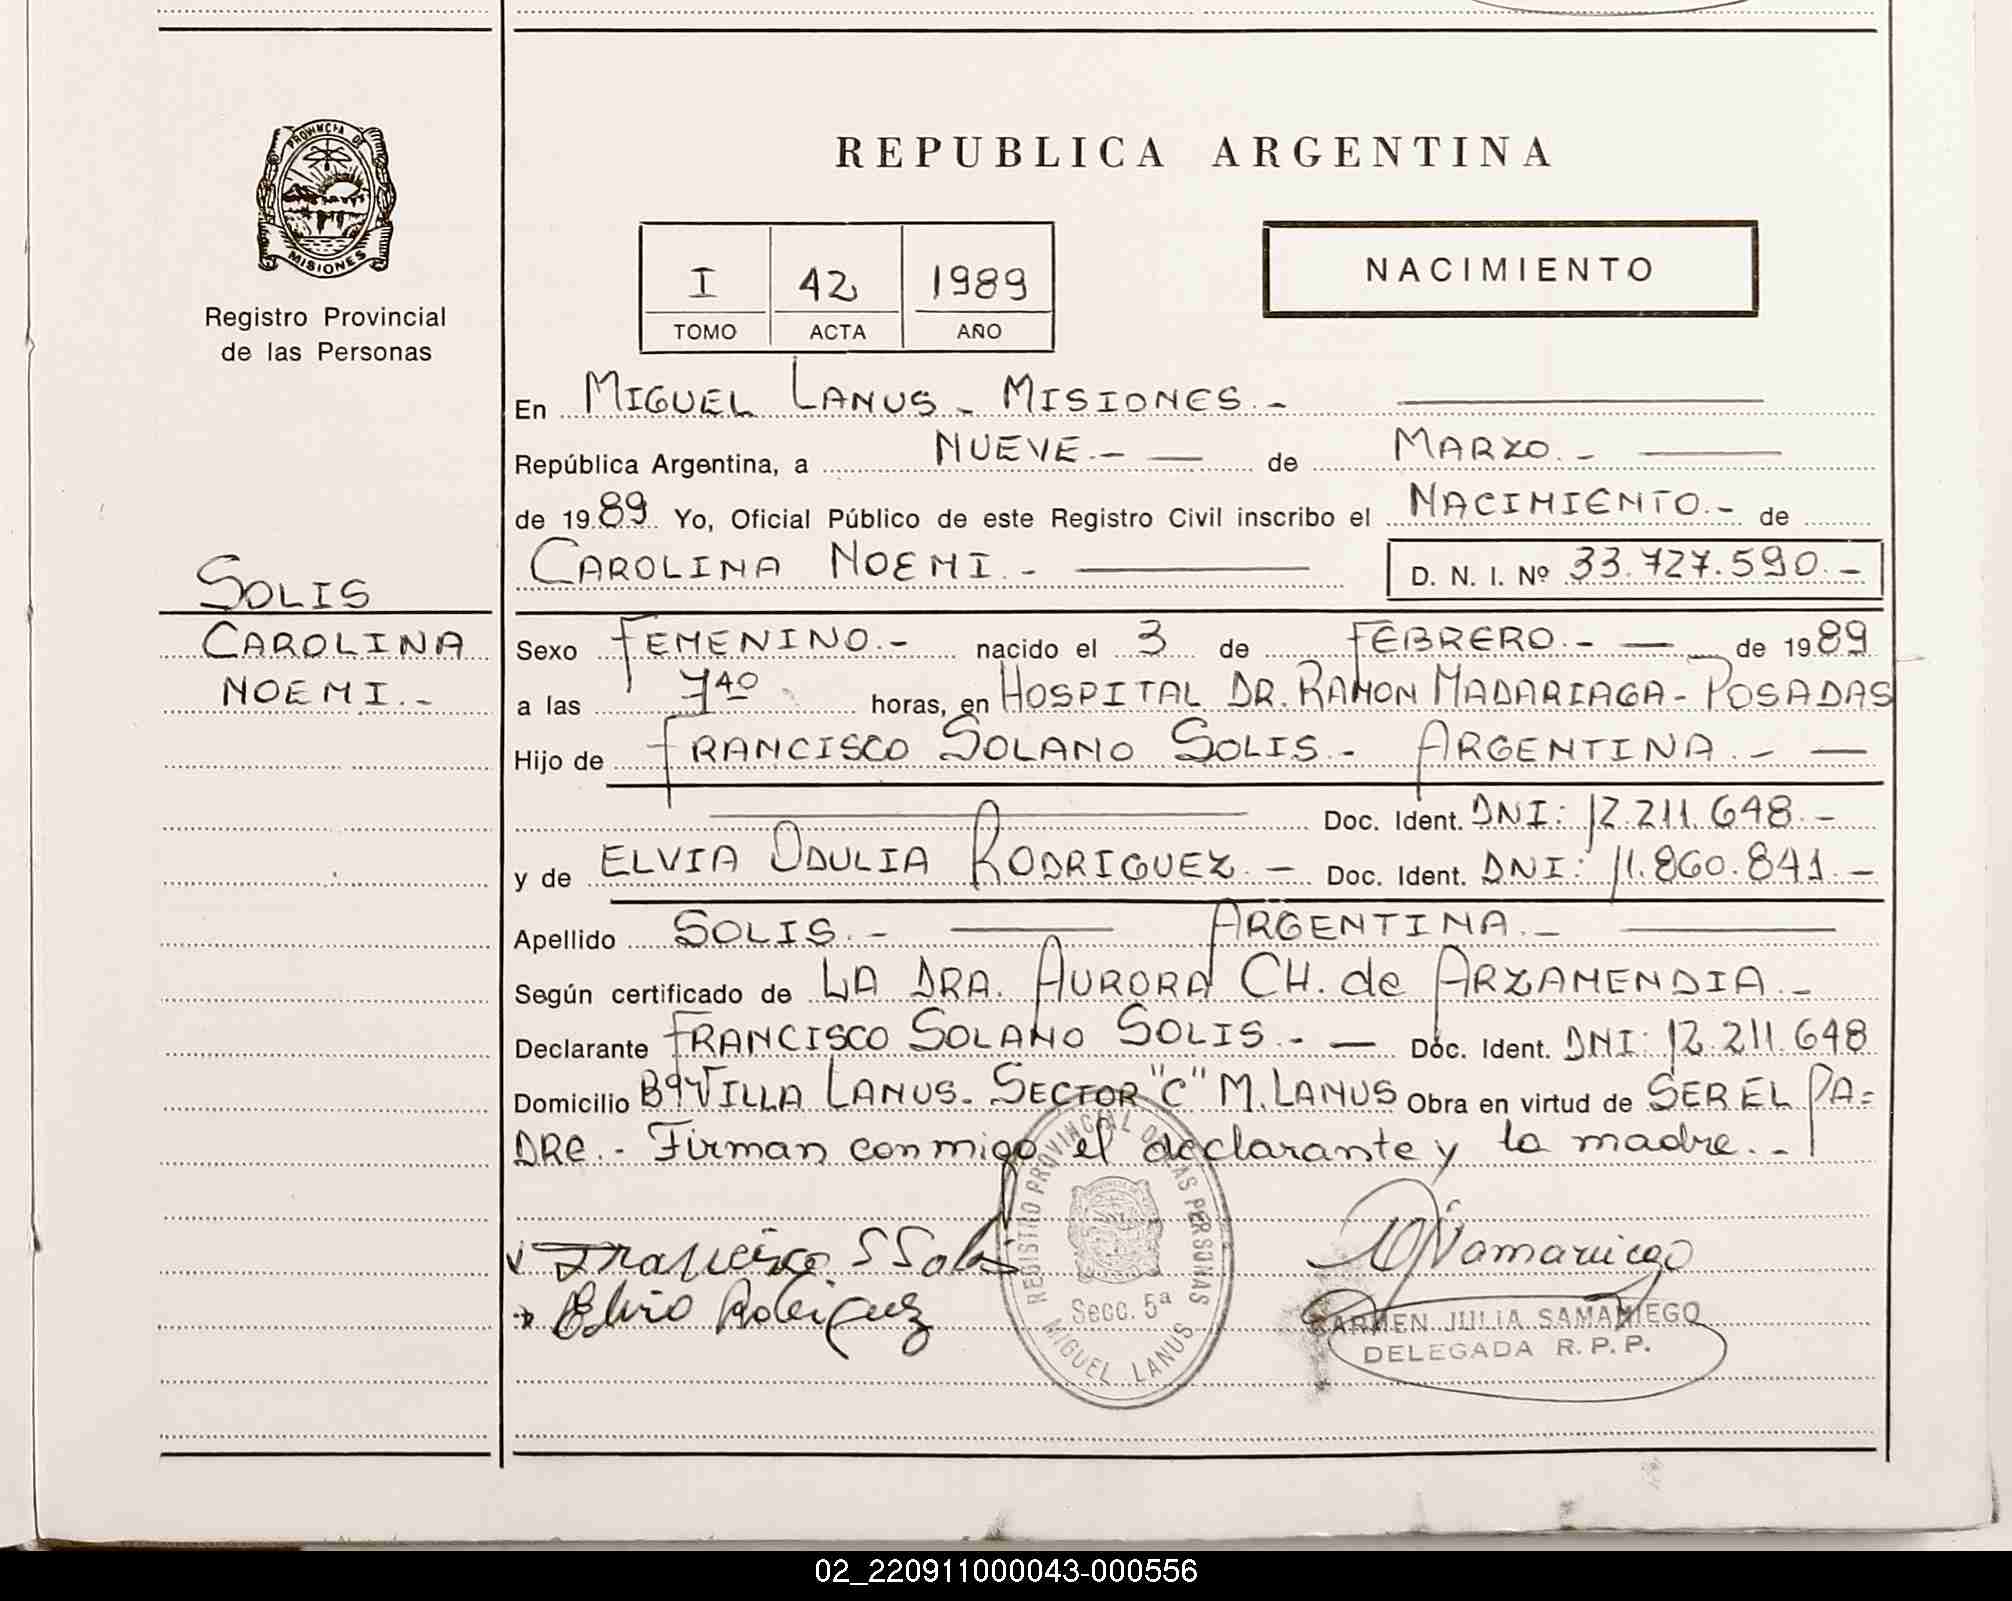 PROVINCIA DE
MISIONES
Registro Provincial
de las Personas
REPUBLICA ARGENTINA
I 42 1989
TOMO ACTA AÑO
NACIMIENTO
En MIGUEL LANUS - MISIONES.-
República Argentina, a NUEVE.- de MARZO.-
de 1989 Yo, Oficial Público de este Registro Civil inscribo el NACIMIENTO.- de
CAROLINA NOEMI.- D. N. I. Nº 33.727.590.-
SOLIS
CAROLINA
NOEMI.-
Sexo FEMENINO.- nacido el 3 de FEBRERO.- de 1989
a las 7 40 horas, en HOSPITAL DR. RAMON MADARIAGA - POSADAS
Hijo de FRANCISCO SOLANO SOLIS.- ARGENTINA.-
Doc. Ident. DNI: 12.211.648.-
y de ELVIA ODULIA RODRIGUEZ.- Doc. Ident. DNI: 11.860.841.-
Apellido SOLIS.- ARGENTINA.-
Según certificado de LA DRA. AURORA CH. de ARZAMENDIA.-
Declarante FRANCISCO SOLANO SOLIS.- Doc. Ident. DNI: 12.211.648
Domicilio Bº VILLA LANUS. SECTOR "C" M. LANUS Obra en virtud de SER EL PA=
DRE.- Firman conmigo el declarante y la madre.-
Francisco S Solis
Elvia Rodriguez
REGISTRO PROVINCIAL DE LAS PERSONAS
Secc. 5ª
MIGUEL LANUS
CARMEN JULIA SAMANIEGO
DELEGADA R. P. P.
02_220911000043-000556